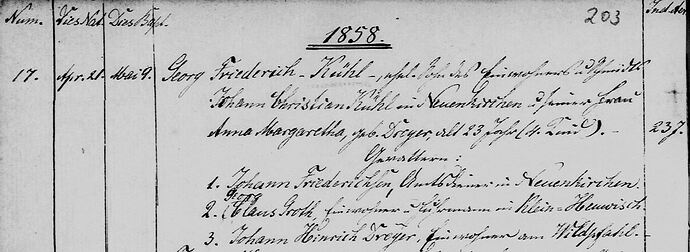 Num. Dies Nat. Dies Bapt.
1858.
203
17. Apr. 21. Mai 9. Georg Friederich - Kühl -, ehel. Sohn des Einwohners u Schmidts
Johann Christian Kühl in Neuenkirchen u seiner Frau
Anna Margaretha, geb. Dreyer, alt 23 Jahr (4. Kind). - 23 J.
Gevattern:
1. Johann Friederichsen, Amtsdiener in Neuenkirchen.
2. Claus Groth, Einwohner u Fuhrmann in Klein-Heuwisch
3. Johann Hinrich Dreyer, Einwohner am Wildpfahl.